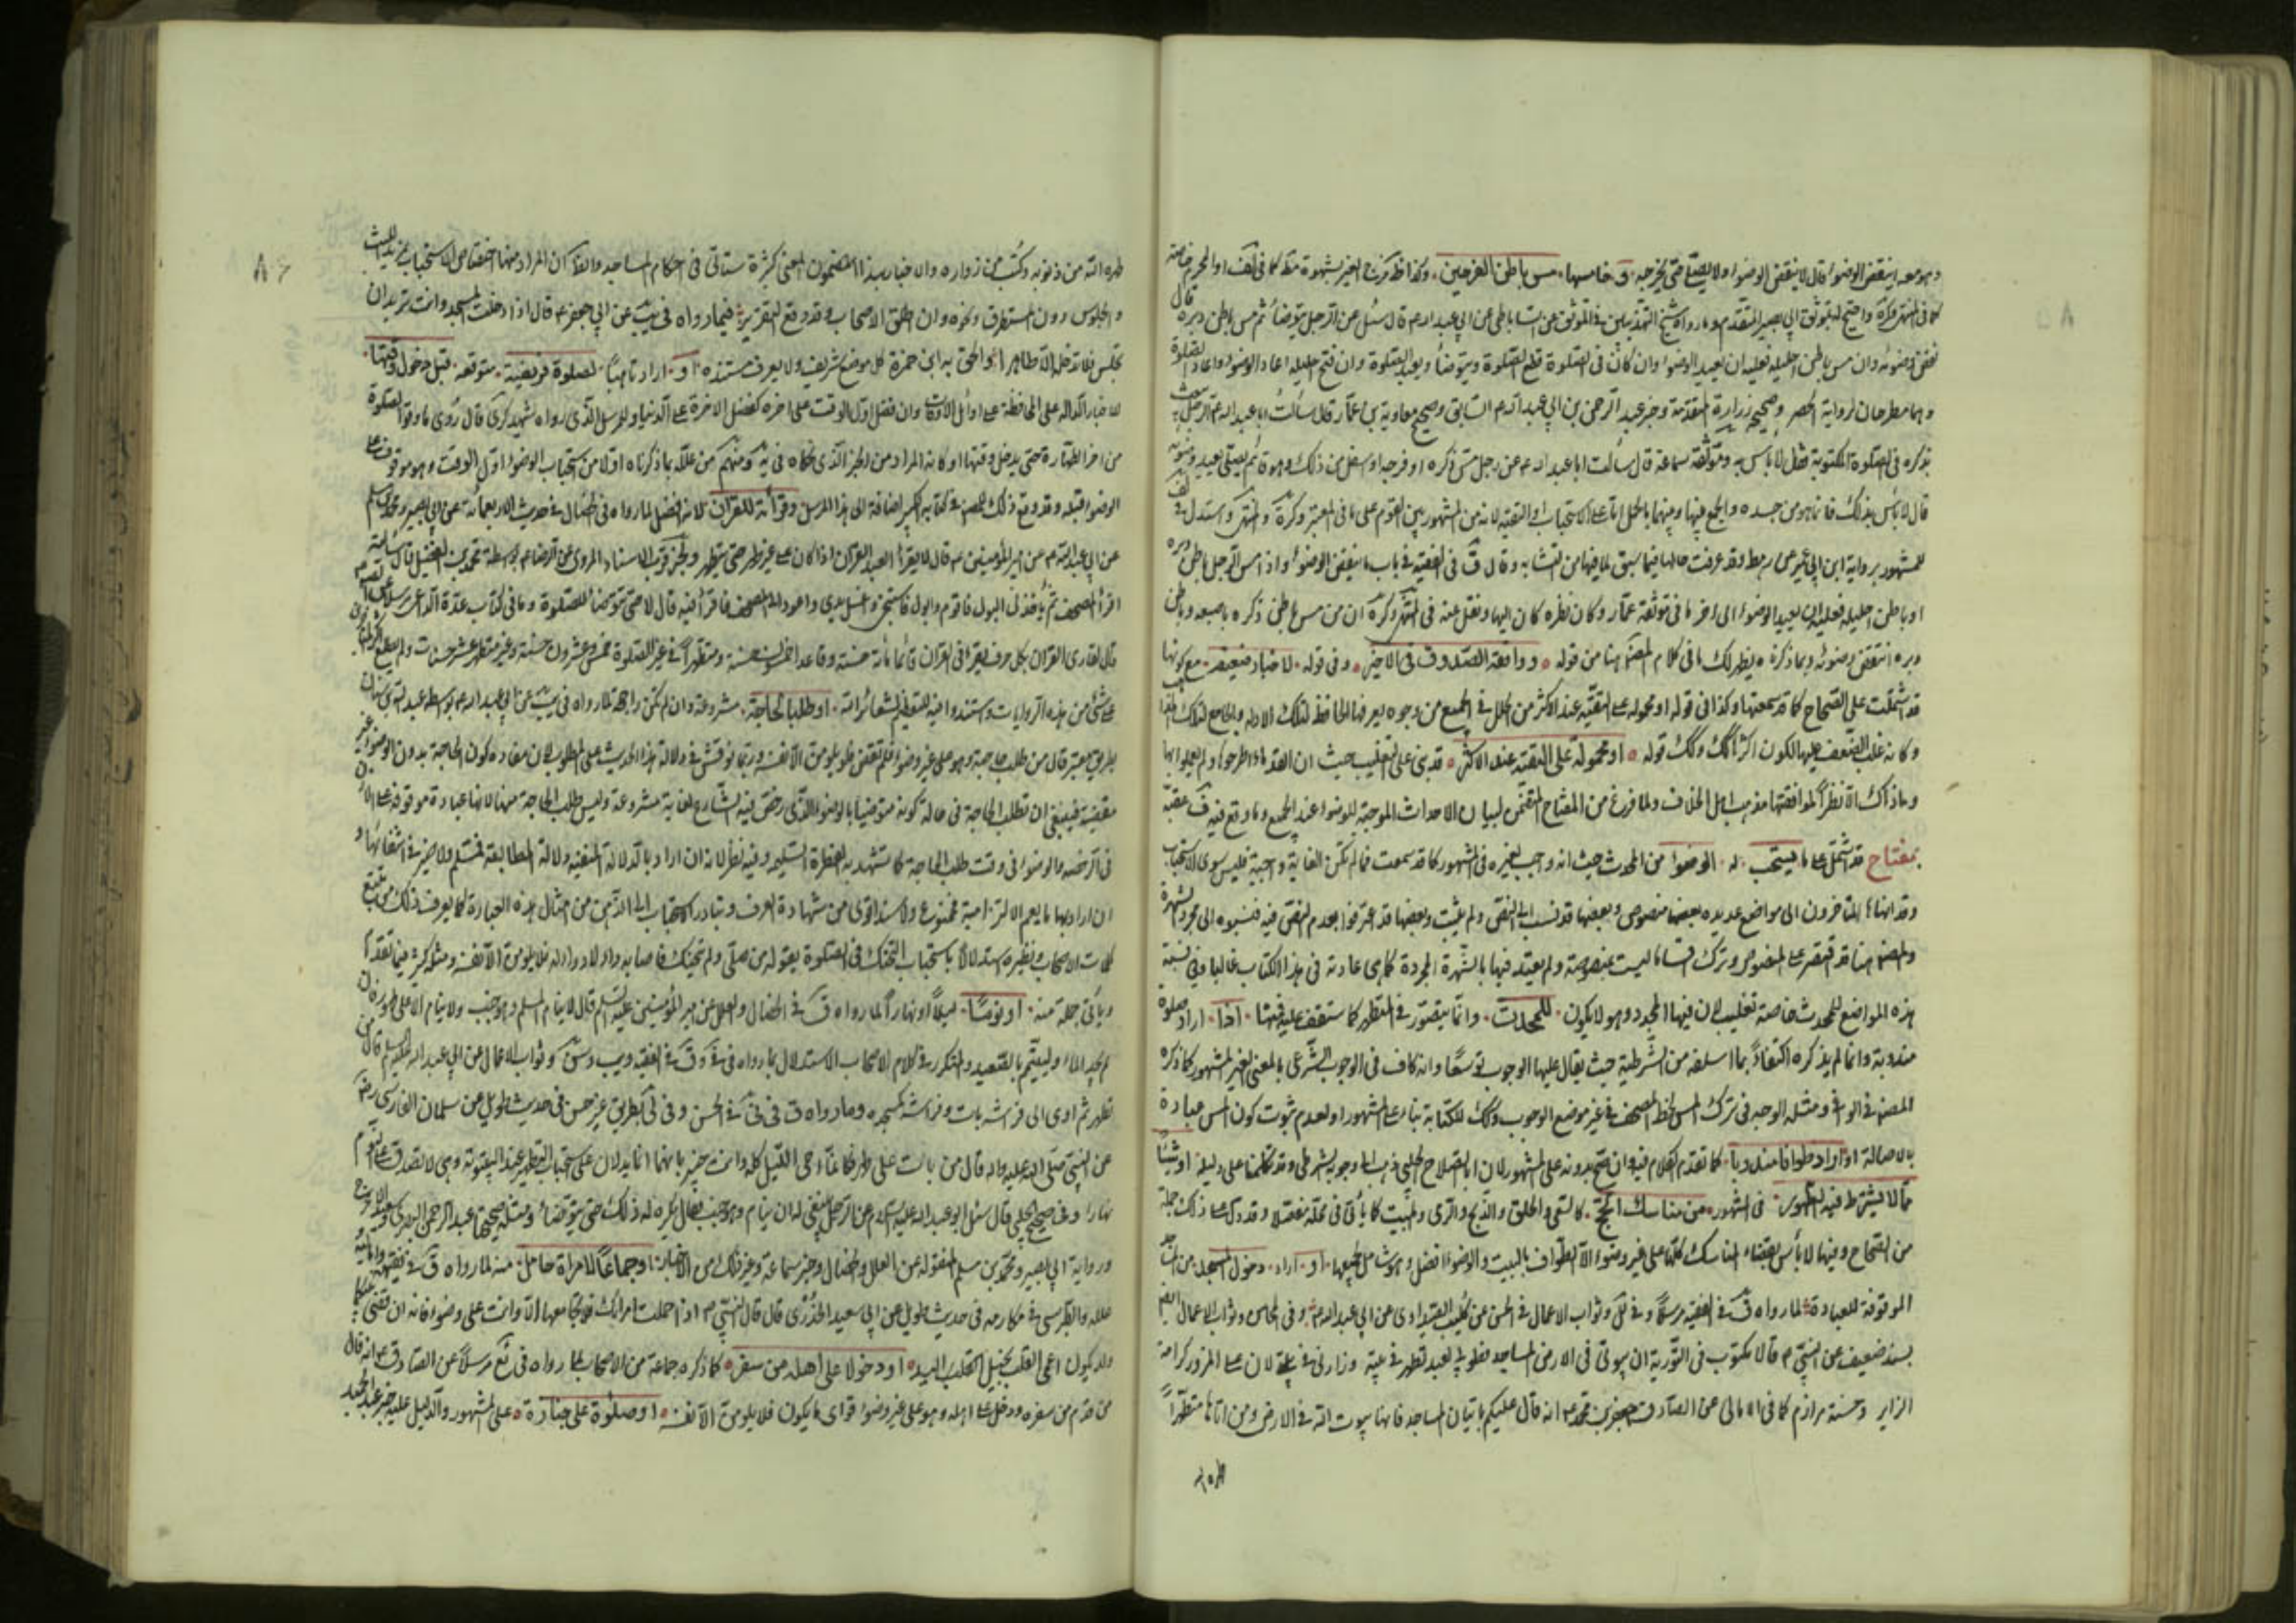 ٨٥
وهو معه اينقض الوضوء قال لا ينقض الوضوء ولا يصلي حتى يخرجه وخامسها مس باطن الفرجين وكذا ظاهرهما لغير بشهوة مط كما في لف او المحرم خاصة
نقض وضوئه وان مس باطن احليله فعليه ان يعيد الوضوء وان كان في الصلوة قطع الصلوة ويتوضأ ويعيد الصلوة وان فتح احليله اعاد الوضوء واعاد الصلوة
وهما مطرحان لرواية الحصر وصحيح زرارة المتقدمة وخبر عبد الرحمن بن ابي عبد الله السابق وصحيح معاوية بن عمار قال سألت ابا عبد الله عن الرجل يعبث
بذكره في الصلوة المكتوبة فقال لا بأس به وموثقة سماعة قال سألت ابا عبد الله عن رجل مس ذكره او فرجه او اسفل من ذلك وهو قائم يصلي يعيد وضوءه
قال لا بأس بذلك فانما هو من جسده والجمع بينها وبينهما بالحمل اما على الاستحباب او التقية لانه من المشهور بين القوم على ما في المعتبر وكرة والمنتهى واستدل
للمشهور برواية ابن ابي عمير عن رهط وقد عرفت حالها فيما سبق لما فيها من التشابه وقال ق في الفقيه في باب ما ينقض الوضوء واذا مس الرجل باطن دبره
او باطن احليله فعليه ان يعيد الوضوء الى اخر ما في موثقة عمار وكان نظره كان اليها ونقل عنه في المنتهى وكرة ان من مس باطن ذكره باصبعه او باطن
دبره انتقض وضوئه وبما ذكرناه يظهر لك ما في كلام المصنف هنا من قوله ووافقه الصدوق في الاخير وفي قوله لاخبار ضعيفة مع كونها
قد اشتملت على الصحاح كما قد سمعتها وكذا في قوله او محمولة على التقية عند الاكثر من الخلل في الجميع من وجوه يعرفها الحافظ لتلك الادلة والجامع لتلك
وكانه غلب الضعف عليها لكون اكثرها كك وكك قوله او محمولة على التقية عند الاكثر قد بنى على التغليب حيث ان القدماء اطرحوها ولم يعملوا بها
وما ذاك الا نظرا لموافقتها مذهب اهل الخلاف ولما فرغ من المفتاح المتضمن لبيان الاحداث الموجبة للوضوء عند الجميع وما وقع فيه خ عقبه
بمفتاح قد اشتمل على ما يستحب له الوضوء من المحدث حيث انه واجب لغيره في المشهور كما قد سمعت فما لم تكن الغاية واجبة فليس سوى الاستحباب
وقد انهاها المتاخرون الى مواضع عديدة بعضها منصوص وبعضها قد نسب الى النص ولم يثبت وبعضها قد اعترفوا بعدم النص فيه فنسبوه الى مجرد الشهرة
والمصنف هنا قد اقتصر على المنصوص وترك اقساما ليست بمنصوصة ولم يعتد فيها بالشهرة المجردة كما هي عادته في هذا الكتاب غالبا وفي نسبة
هذه المواضع للمحدث خاصة تغليب لان فيها المجدد وهو لا يكون للمحدث وانما يتصور في المتطهر كما ستقف عليه فمنها اذا اراد صلوة
مندوبة وانما لم يذكره اكتفاء بما اسلفه من الشرطية حيث يقال عليها الوجوب توسعا وانه كاف في الوجوب الشرعي بالمعنى الغير المشهور كما ذكره
المصنف في الوافي ومثله الوجه في ترك المس لخط المصحف في غير موضع الوجوب وكك للكتابة بناء على المشهور او لعدم ثبوت كون المس عبادة
بالاصالة او اراد طوافا مندوبا كما تقدم الكلام فيه وان صح بدونه على المشهور لان ابا الصلاح الحلبي ذهب الى وجوبه بشرطي وقد تكلمنا على دليله او شيئا
مما لا يشترط فيه الطهور في المشهور من مناسك الحج كالسعي والحلق والذبح والرمي والمبيت كما يأتي في محله مفصلا وقد دل على ذلك جملة
من الصحاح وفيها لا بأس بقضاء المناسك كلها على غير وضوء الا الطواف بالبيت والوضوء افضل وهو شامل لجميعها او اراد دخول المسجد من المساجد
الموقوفة للعبادة لما رواه ق في الفقيه مرسلا وفي لل وثواب الاعمال في الحسن عن كليب الصيداوي عن ابي عبد الله وفي المجالس وثواب الاعمال ايضا
بسند ضعيف عن النبي ص قال مكتوب في التورية ان بيوتي في الارض المساجد فطوبى لعبد تطهر في بيته وزارني في بيتي لان على المزور كرامة
الزاير وحسنة مرازم كما في الامالي عن الصادق جعفر بن محمد ع انه قال عليكم باتيان المساجد فانها بيوت الله في الارض ومن اتاها متطهرا
طهره الله
٨٦
طهره الله من ذنوبه وكتب من زواره والاخبار بهذا المضمون والمعنى كثيرة ستأتي في احكام المساجد والظ ان المراد منها اختصاص الاستحباب بمريد اللبث
والجلوس دون المستطرق ونحوه وان اطلق الاصحاب وقد وقع التصريح فيما رواه في يب عن ابي جعفر ع قال اذا دخلت المسجد وانت تريد ان
تجلس فلا تدخله الا طاهرا والحق به ابن حمزة كل موضع شريف ولا يعرف مستنده او اراد تاهبا لصلوة فريضة متوقعة قبل دخول وقتها
للاخبار الدالة على المحافظة على اوائل الاوقات وان فضل اول الوقت على اخره كفضل الاخرة على الدنيا وللمرسل الذي رواه الشهيد في كرى قال روى ما وقر الصلوة
من اخر الطهارة حتى يدخل وقتها وكانه المراد من الخبر الذي حكاه في يه ومنهم من علله بما ذكرناه اولا من استحباب الوضوء اول الوقت وهو موقوف على
الوضوء قبله وقد وقع ذلك للمص في كتابيه الكبير اضافة الى هذا المرسل وقرائة للقران لانه افضل لما رواه في الخصال في حديث الاربعمائة عن ابي بصير ومحمد بن مسلم
عن ابي عبد الله ع عن امير المؤمنين ع قال لا يقرأ العبد القران اذا كان على غير طهر حتى يتطهر والخبر قرب الاسناد المروي عن الرضا ع بواسطة محمد بن الفضيل قال سألته
اقرأ المصحف ثم يأخذني البول فاقوم وابول فاستنجي واغسل يدي واعود الى المصحف فاقرأ فيه قال لا حتى تتوضأ للصلوة وما في كتاب عدة الداعي مرسلا عن الصادق ع
قال لقارى القران بكل حرف يقرؤ في القران قائما مائة حسنة وقاعدا خمسون حسنة ومتطهرا في غير الصلوة خمس وعشرون حسنة وغير متطهر عشر حسنات ولم يطلع الاكثر
على شئ من هذه الروايات واستندوا فيه للتعظيم لشعائر الله او طلبا لحاجة مشروعة وان لم تكن راجحة لما رواه في يب عن ابي عبد الله ع بواسطة عبد الله بن سنان
بطريق معتبر قال من طلب حاجة وهو على غير وضوء فلم تقض فلا يلومن الا نفسه وربما نوقش في دلالة هذا الحديث على المطلوب لان مفاده كون الحاجة بدون الوضوء غير
مقضية فينبغي ان تطلب الحاجة في حالة كونه متوضئا بالوضوء الذي رخص فيه الشارع لغاية مشروعة وليس طلب الحاجة منها لانها عبادة موقوفة على الاذن
في الرخصة والوضوء في وقت طلب الحاجة كما تشهد به الفطرة السليمة وفيه نظر لانه ان اراد بالدلالة المنفية دلالة المطابقة فمسلم ولا ضير في انتفائها
وان اراد بها ما يعم الالتزامية فممنوع والسند اقوى من شهادة العرف وتبادر الاستحباب الى الذهن من امثال هذه العبارة كما يعرف ذلك من تتبع
كلمات الاصحاب ونظيره استدلالا باستحباب التحنك في الصلوة بقوله من صلى ولم يتحنك فاصابه داء لا دواء له فلا يلومن الا نفسه ومثله كثير فيما تقدم
ويأتي جملة منه او نوما ليلا او نهارا لما رواه ق في الخصال والعلل عن امير المؤمنين عليه السلام قال لا ينام المسلم وهو جنب ولا ينام الا على طهور فان
لم يجد الماء فليتيمم بالصعيد والمتكرر في كلام الاصحاب الاستدلال بما رواه في في وق في الفقيه ويب وسن وثواب الاعمال عن ابي عبد الله عليه السلم قال من
تطهر ثم اوى الى فراشه بات وفراشه كمسجده وما رواه ق في الحسن وفي لي بطريق غير حسن في حديث طويل عن سلمان الفارسي رضه
عن النبي صلى الله عليه واله قال من بات على طهر فكانما احيى الليل كله وانت خبير بانهما انما يدلان على استحباب التطهير عند البيتوتة وهي لا تصدق على النوم
نهارا وفي صحيح الحلبي قال سئل ابو عبد الله عليه السلام عن الرجل اينبغي له ان ينام وهو جنب فقال يكره له ذلك حتى يتوضأ ومثله صحيحة عبد الرحمن البصري
ورواية ابي بصير ومحمد بن مسلم المنقولة عن العلل والخصال وخبر سماعة وغير ذلك من الاخبار او جماعا لامراة حامل منه لما رواه ق في فقيهه واماليه
علله والطبرسي في مكارمه في حديث طويل عن ابي سعيد الخدري قال قال النبي ص اذا حملت امراتك فلا تجامعها الا وانت على وضوء فانه ان قضي بينكما
ولد يكون اعمى القلب بخيل اليد او دخولا على اهله من سفر كما ذكره جماعة من الاصحاب لما رواه في نع مرسلا عن الصادق ع انه قال
من قدم من سفره ودخل على اهله وهو على غير وضوء فراى ما يكون فلا يلومن الا نفسه او صلوة على جنازة على المشهور والدليل عليه خبر عبد الحميد